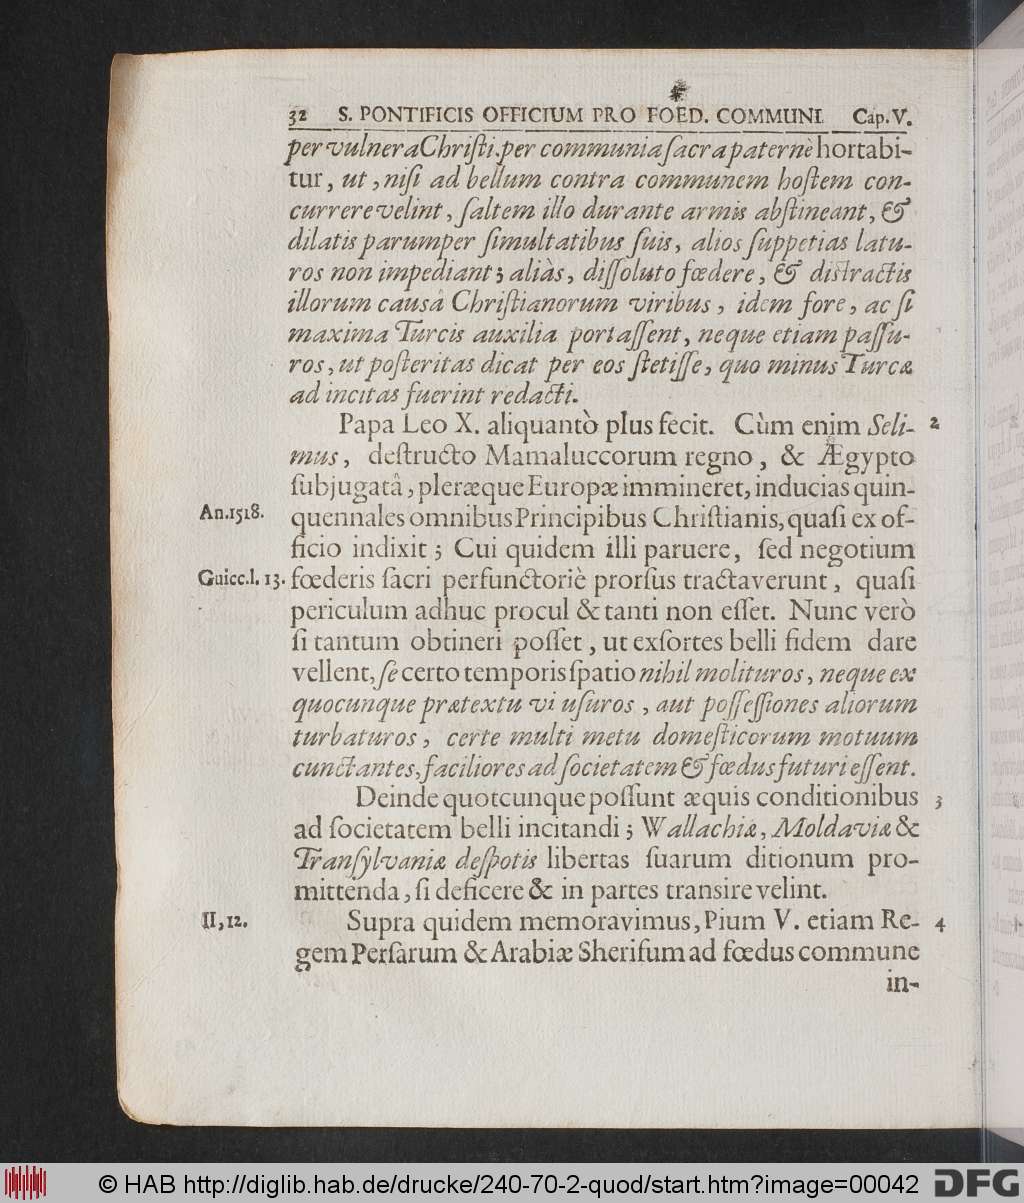 32 S. PONTIFICIS OFFICIUM PRO FOED. COMMUNI. Cap. V.
per vulnera Chriſti, per communia ſacra paternè hortabi-
tur, ut, niſi ad bellum contra communem hoſtem con-
currere velint, ſaltem illo durante armis abſtineant, &
dilatis parumper ſimultatibus ſuis, alios ſuppetias latu-
ros non impediant; aliàs, diſſoluto fœdere, & diſtractis
illorum causâ Chriſtianorum viribus, idem fore, ac ſi
maxima Turcis auxilia portaſſent, neque etiam paſſu-
ros, ut poſteritas dicat per eos ſtetiſſe, quo minus Turcæ
ad incitas fuerint redacti.
Papa Leo X. aliquantò plus fecit. Cùm enim Seli- 2
mus, deſtructo Mamaluccorum regno, & Ægypto
ſubjugatâ, pleræque Europæ immineret, inducias quin-
An. 1518. quennales omnibus Principibus Chriſtianis, quaſi ex of-
ficio indixit; Cui quidem illi paruere, ſed negotium
Guicc. l. 13. fœderis ſacri perfunctoriè prorſus tractaverunt, quaſi
periculum adhuc procul & tanti non eſſet. Nunc verò
ſi tantum obtineri poſſet, ut exſortes belli fidem dare
vellent, ſe certo temporis ſpatio nihil molituros, neque ex
quocunque prætextu vi uſuros, aut poſſeſſiones aliorum
turbaturos, certe multi metu domeſticorum motuum
cunctantes, faciliores ad ſocietatem & fœdus futuri eſſent.
Deinde quotcunque poſſunt æquis conditionibus 3
ad ſocietatem belli incitandi; Wallachiæ, Moldaviæ &
Tranſylvaniæ deſpotis libertas ſuarum ditionum pro-
mittenda, ſi deficere & in partes transire velint.
II, 12. Supra quidem memoravimus, Pium V. etiam Re- 4
gem Perſarum & Arabiæ Sherifum ad fœdus commune
in-
© HAB http://diglib.hab.de/drucke/240-70-2-quod/start.htm?image=00042
DFG